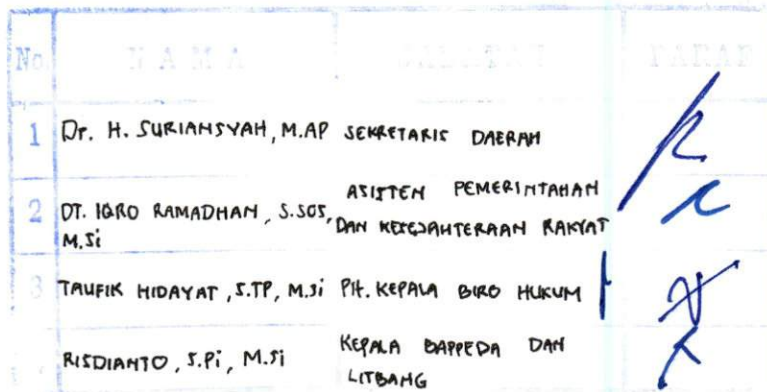 No NAMA JABATAN PARAF
1 Dr. H. SURIANSYAH, M.AP SEKRETARIS DAERAH
2 DT. IQRO RAMADHAN, S.SOS, M.Si ASISTEN PEMERINTAHAN DAN KESEJAHTERAAN RAKYAT
3 TAUFIK HIDAYAT, S.TP, M.Si Plt. KEPALA BIRO HUKUM
RISDIANTO, S.Pi, M.Si KEPALA BAPPEDA DAN LITBANG